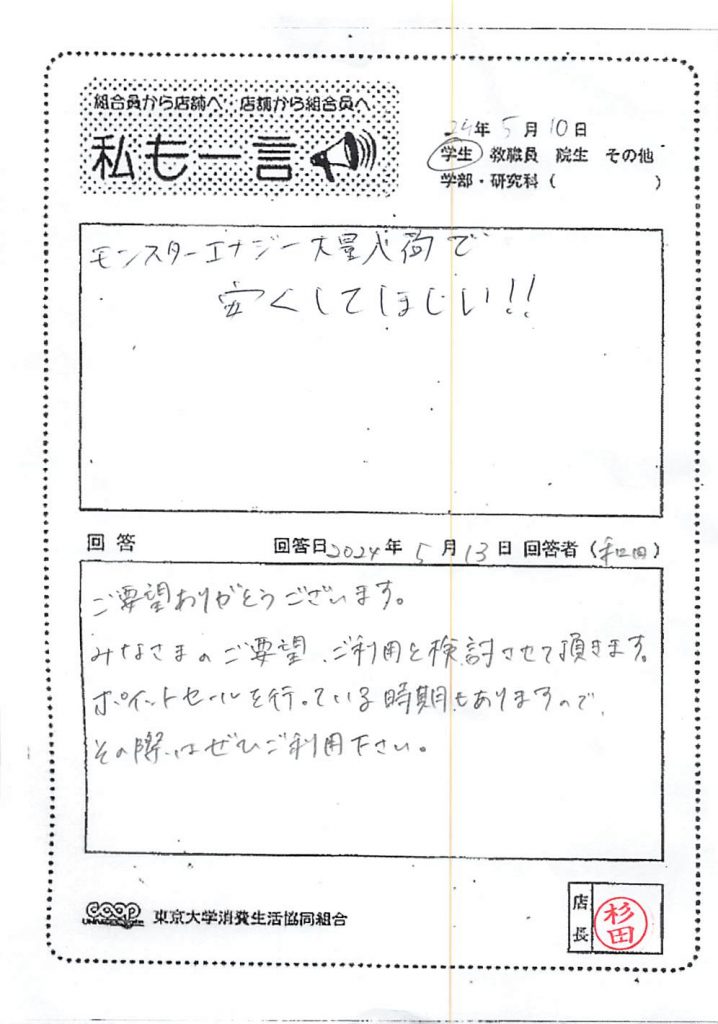 組合員から店舗へ 店舗から組合員へ
私も一言
24年 5月 10日
学生 教職員 院生 その他
学部・研究科 ( )
モンスターエナジー大量入荷で
安くしてほしい!!
回答 回答日 2024年 5月 13日 回答者 (和田)
ご要望ありがとうございます。
みなさまのご要望、ご利用を検討させて頂きます。
ポイントセールを行っている時期もありますので、
その際はぜひご利用下さい。
coop 東京大学消費生活協同組合
店長
杉田